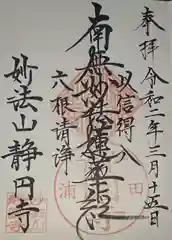 奉拝 令和二年三月十五日
以信得入
南無妙法蓮華経
六根清浄
妙法山 静円寺